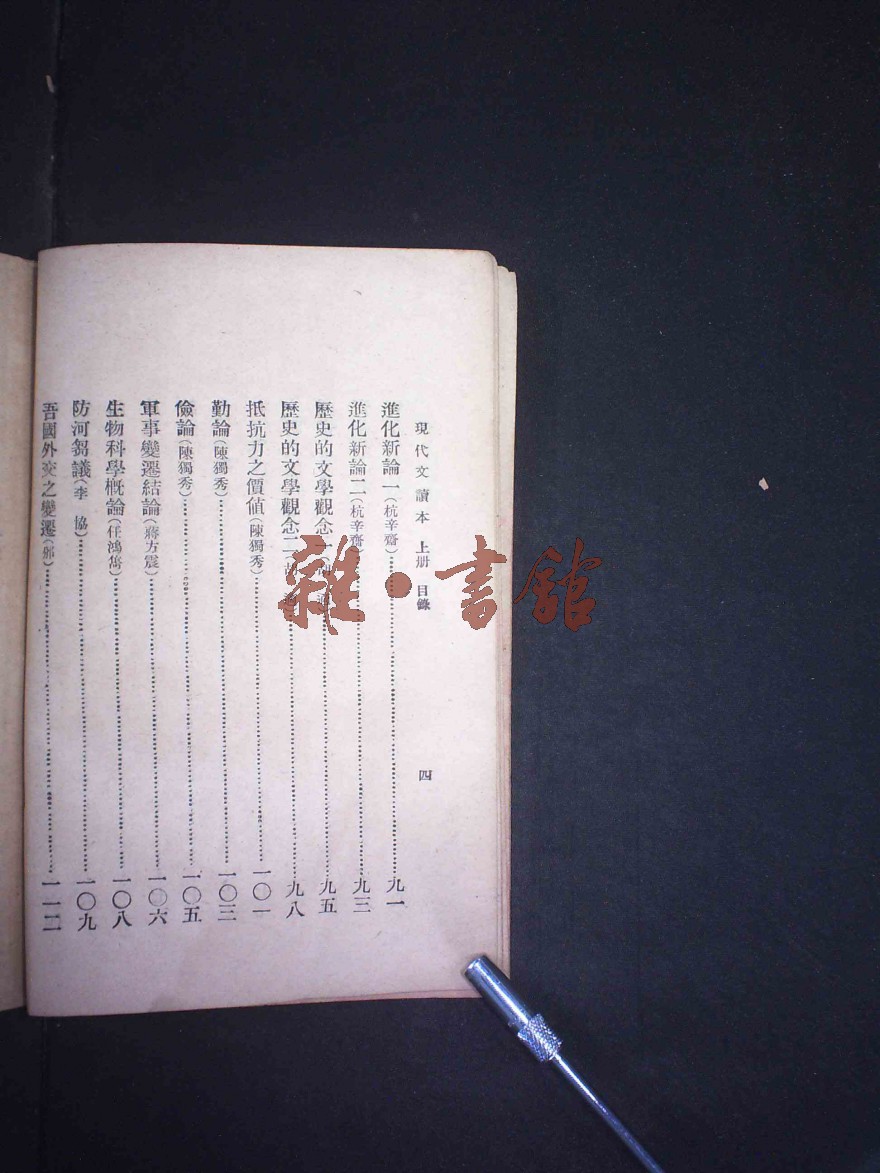 現代文讀本 上册 目錄 四
進化新論一(杭辛齋)……九一
進化新論二(杭辛齋)……九三
歷史的文學觀念一(胡適)……九五
歷史的文學觀念二(胡適)……九八
抵抗力之價值(陳獨秀)……一〇一
勤論(陳獨秀)……一〇三
儉論(陳獨秀)……一〇五
軍事變遷結論(蔣方震)……一〇六
生物科學概論(任鴻雋)……一〇八
防河芻議(李 協)……一〇九
吾國外交之變遷……一一二
雜·書館